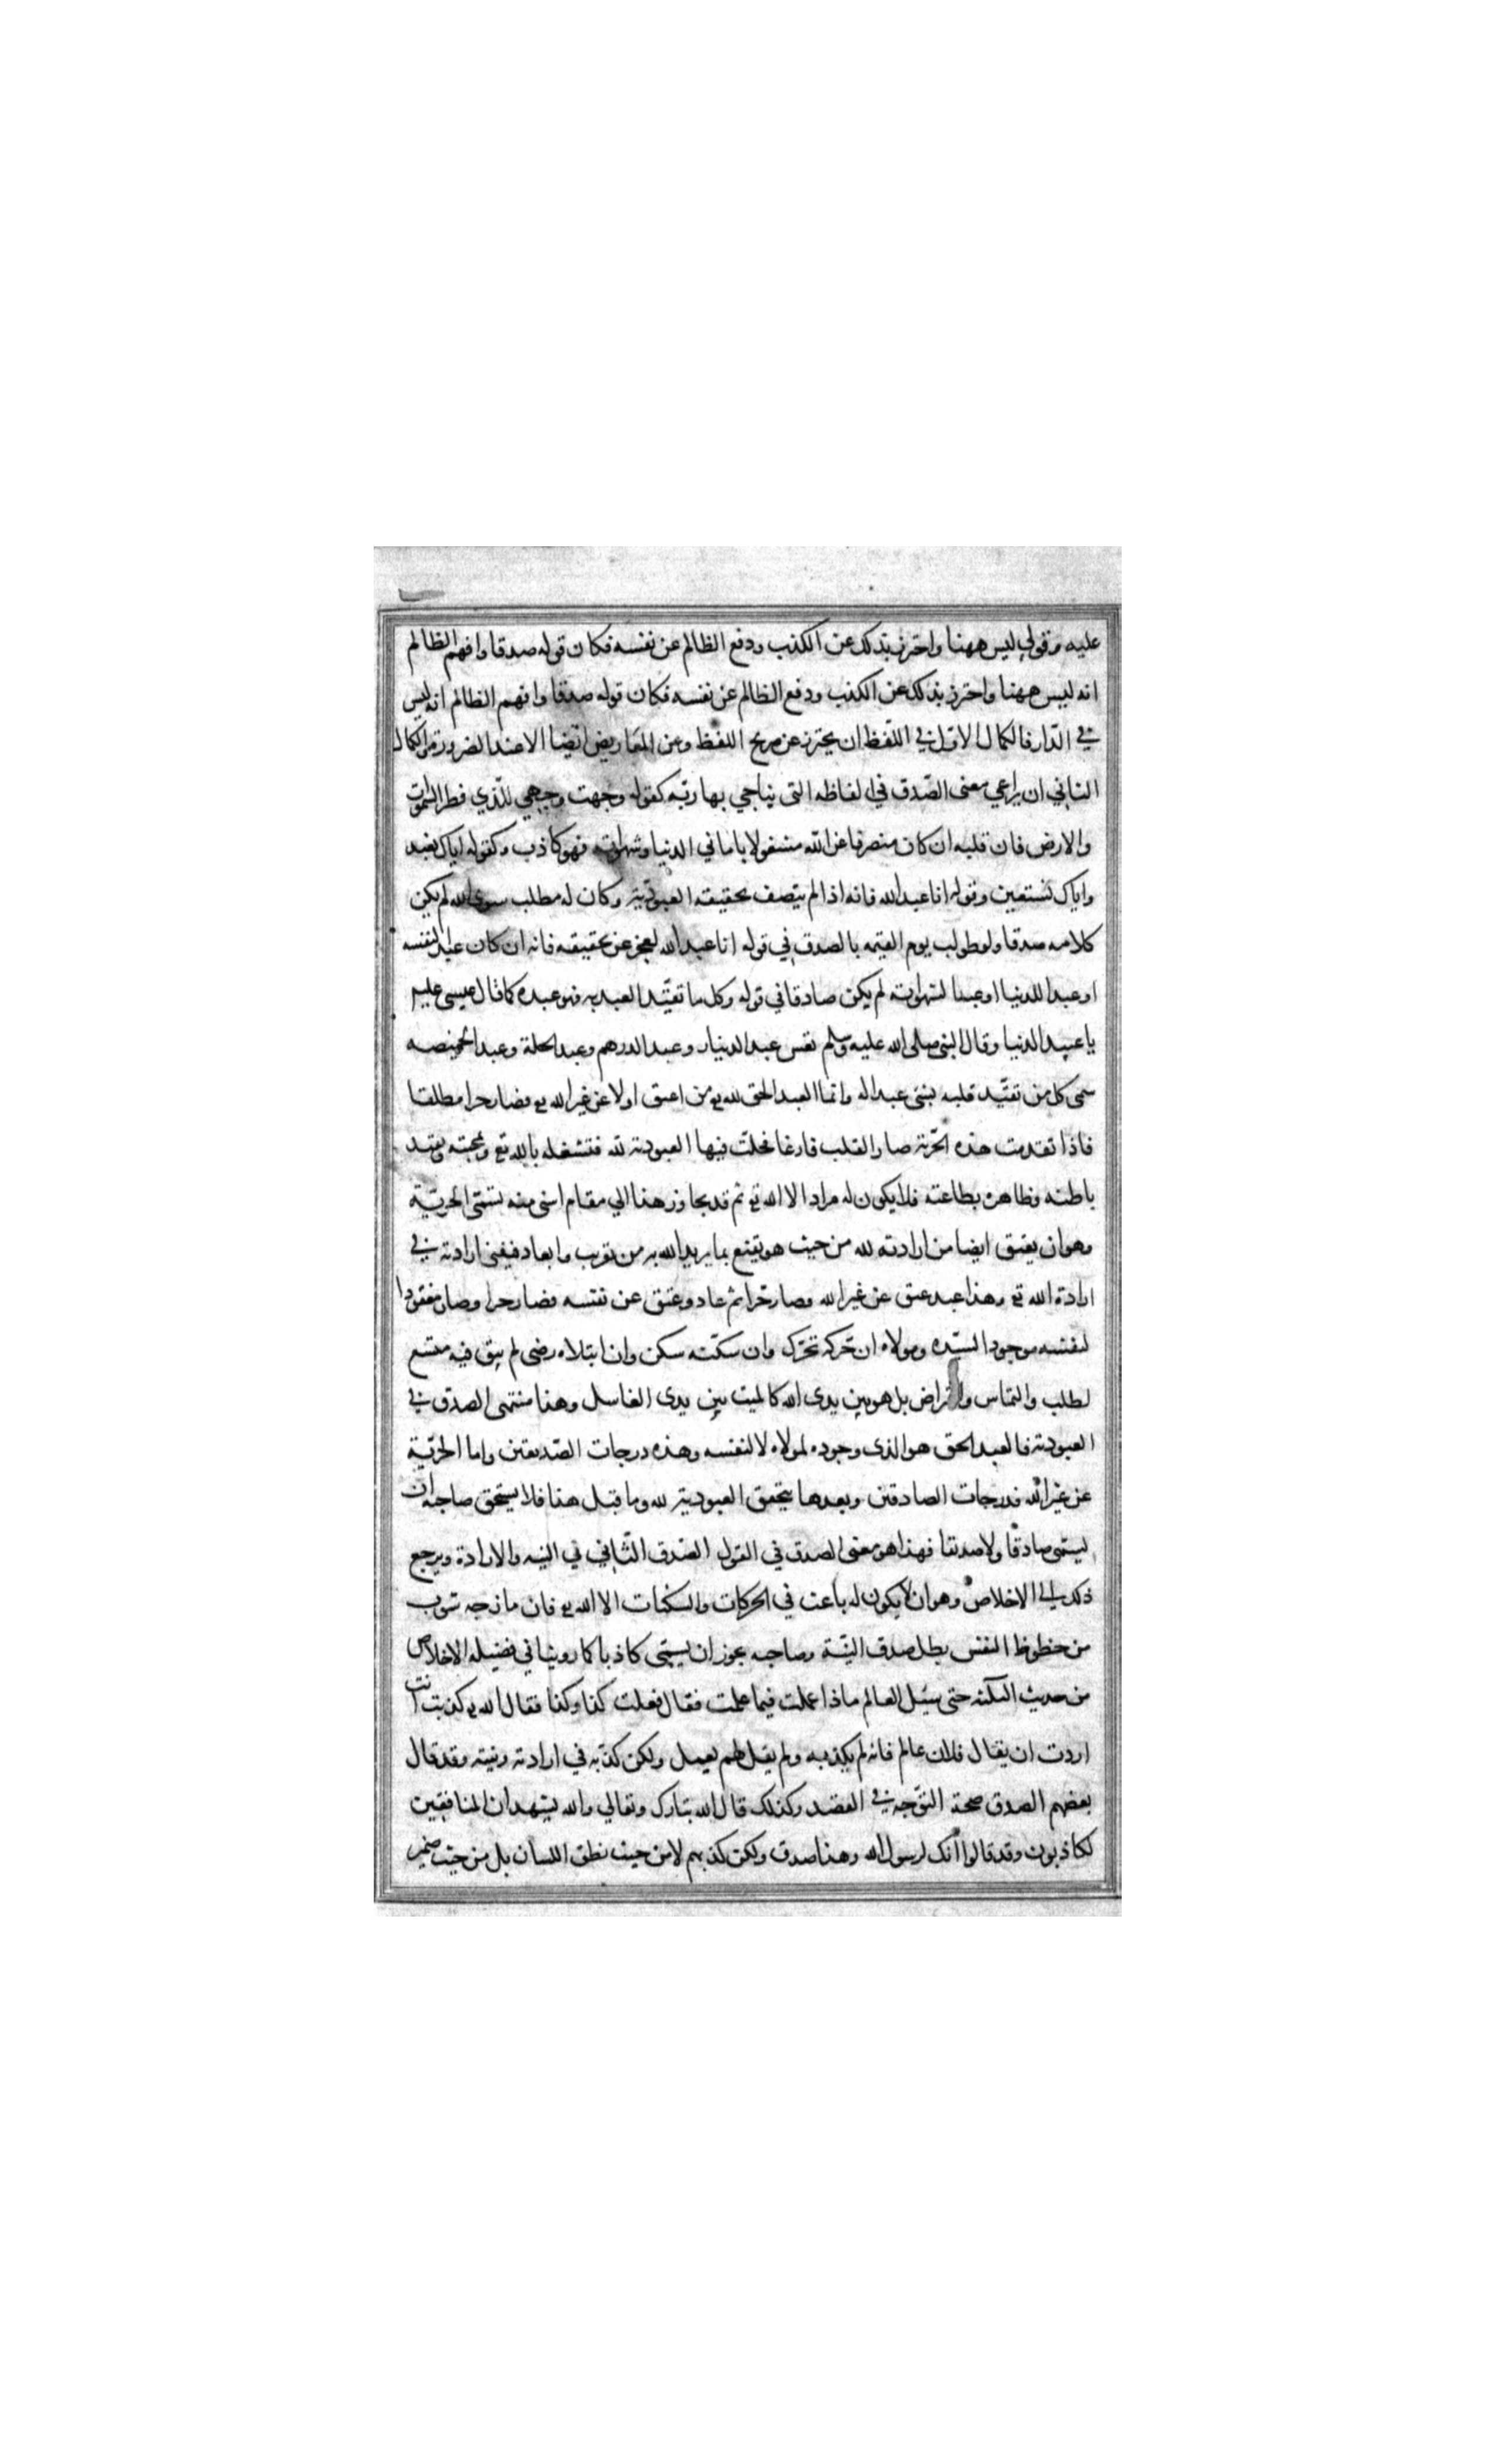 عليه وقولي ليس ههنا واحترز بذلك عن الكذب ودفع الظالم عن نفسه فكان قوله صدقا وافهم الظالم
انه ليس ههنا واحترز بذلك عن الكذب ودفع الظالم عن نفسه فكان قوله صدقا وافهم الظالم انه ليس
في الدّار فالكمال الاوّل في اللّفظ ان يحترز عن صريح اللفظ وعن المعاريض ايضا الا عند الضرورة والكمال
الثاني ان يراعي معنى الصّدق في الفاظه التى يناجي بها ربّه كقوله وجهت وجهي للّذي فطر السّموات
والارض فان قلبه ان كان منصرفا عن اللّه مشغولا باماني الدنيا وشهواته فهو كاذب وكقوله اياك نعبد
واياك نستعين وقوله انا عبد الله فانه اذا لم يتصف بحقيقه العبوديّة وكان له مطلب سوى الله لم يكن
كلامه صدقا ولو طولب يوم القيمه بالصدق في قوله انا عبد الله لعجز عن تحقيقه فانه ان كان عبدا لنفسه
او عبدا للدنيا او عبدا لشهواته لم يكن صادقا في قوله وكل ما تقيّد العبد به فهو عبده كما قال عيسى عليه
يا عبيد الدنيا وقال النبي صلى الله عليه وسلم تعس عبد الدينار وعبد الدرهم وعبد الحلة وعبد الخميصه
سمى كل من تقيّد قلبه بشئ عبدا له وانما العبد الحق لله تع من اعتق اولا عن غير الله تع فصار حرا مطلقا
فاذا تقدمت هذه الحرّية صار القلب فارغا فحلّت فيها العبودية لله فتشغله بالله تع وبمحبته وتقيد
باطنه وظاهره بطاعته فلا يكون له مراد الا الله تع ثم قد يجاوز هذا الي مقام اسنى منه تسمّى الحريّة
وهو ان يعتق ايضا من ارادته لله من حيث هو يقنع بما يريد الله به من تقريب وابعاد فيفنى ارادته في
ارادة الله تع وهذا عبد عتق عن غير الله وصار حرّا ثم عاد وعتق عن نفسه فصار حرا وصار مفقودا
لنفسه موجودا لسيّده ومولاه ان حرّكه تحرّك وان سكّنه سكن وان ابتلاه رضى لم يبق فيه متسع
لطلب والتماس واعتراض بل هو بين يدى الله كالميت بين يدى الغاسل وهذا منتهى الصدق في
العبودية فالعبد الحق هو الذى وجوده لمولاه لا لنفسه وهذه درجات الصّديقين واما الحرّية
عن غير الله فدرجات الصادقين وبعدها يتحقق العبودية لله وما قبل هذا فلا يستحق صاحبه ان
يسمّى صادقا ولا صديقا فهذا هو معنى الصدق في القول الصّدق الثّاني في النيه والارادة ويرجع
ذلك الى الاخلاص وهو ان لا يكون له باعث في الحركات والسكنات الا الله تع فان مازجه شوب
من حظوظ النفس بطل صدق النيّة وصاحبه يجوز ان يسمّى كاذبا كما روينا في فضيله الاخلاص
من حديث الثلثه حتى سئل العالم ماذا عملت فيما علمت فقال فعلت كذا وكذا فقال الله تع كذبت انت
اردت ان يقال فلان عالم فانه لم يكذبه ولم يقل لهم لعمل ولكن كذّبه في ارادته ونيته وقد قال
بعضهم الصدق صحة التوّجه في القصد وكذلك قال الله تبارك وتعالي والله يشهد ان المنافقين
لكاذبون وقد قالوا انّك لرسول الله وهذا صدق ولكن كذبهم لا من حيث نطق اللسان بل من حيث ضمير